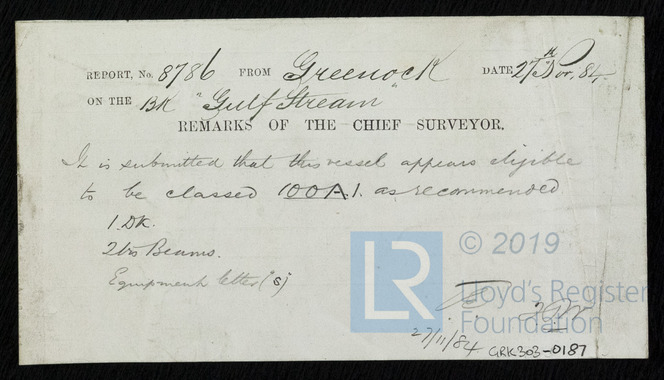 REPORT, No. 8786 FROM Greenock DATE 27th Nov. 84.
ON THE BK "Gulf Stream"
REMARKS OF THE CHIEF SURVEYOR.
It is submitted that this vessel appears eligible
to be classed 100A.1. as recommended
1. DK.
2 trs Beams.
Equipment letter (S)
© 2019
LR Lloyd's Register
Foundation
27/11/84
GRK303-0187